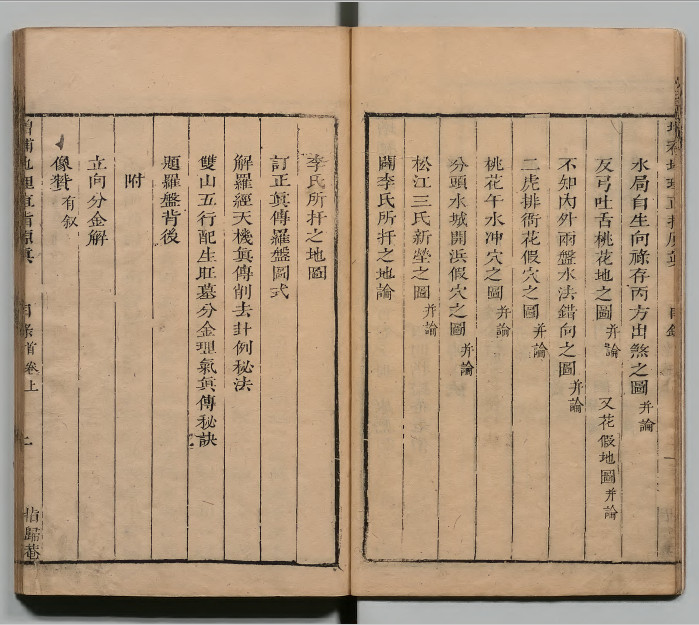 水局自生向祿存丙方出煞之圖 并論
反弓吐舌桃花地之圖 并論 又花假地圖 并論
不知內外兩盤水法錯向之圖 并論
二虎排衙花假穴之圖 并論
桃花午水冲穴之圖 并論
分頭水城開浜假穴之圖 并論
松江三氏新塋之圖 并論
闢李氏所扞之地論
李氏所扞之地圖
訂正眞傳羅盤圖式
解羅經天機眞傳削去卦例秘法
雙山五行配生旺墓分金理氣眞傳秘訣
題羅盤背後
附
立向分金解
像贊 有叙
地理直指原眞 目錄首卷上
指歸菴